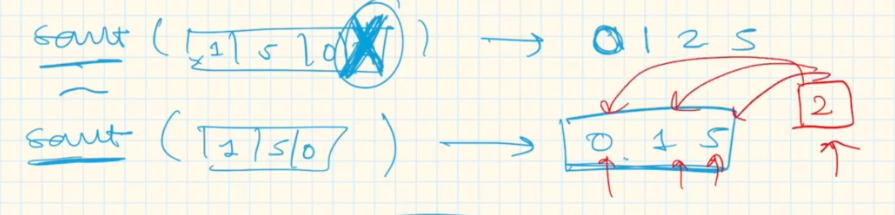 sort ( 1 5 0 ) → 0 1 2 5
2
sort ( 1 5 0 ) → 0 1 5